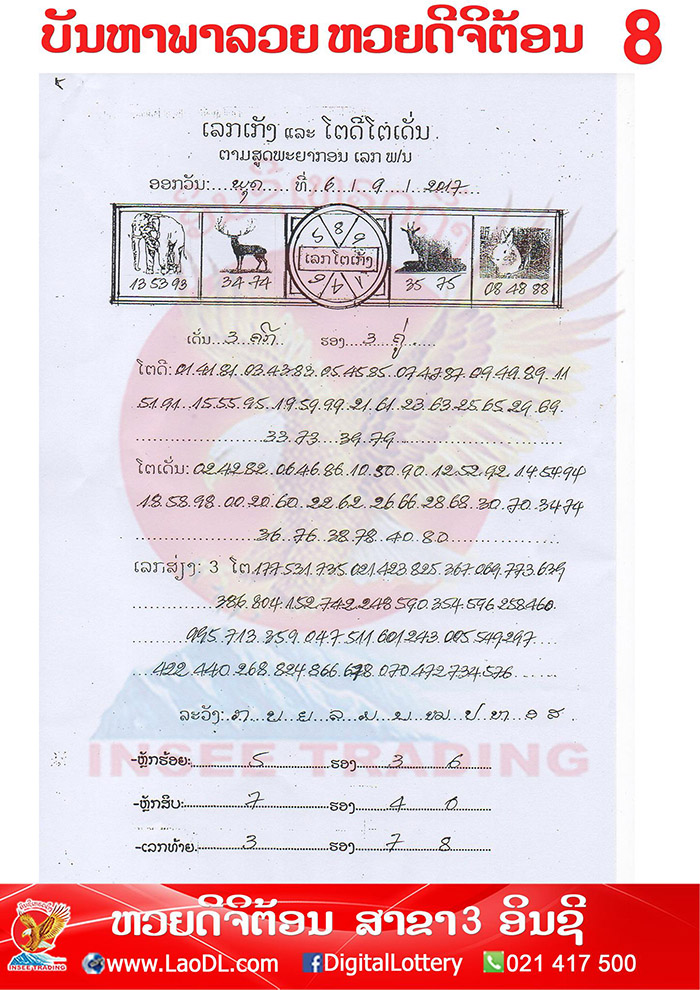 ບັນຫາພາລວຍ ຫວຍດີຈິຕ້ອນ 8
ເລກເກັງ ແລະ ໂຕດີໂຕເດັ່ນ
ຕາມສູດພະຍາກອນ ເລກ ພ/ນ
ອອກວັນ:....ພຸດ..... ທີ່...6./..9../..2017....
5 8 9
ເລກໂຕເກັງ
13 53 93 34 74 35 75 08 48 88
ເດັ່ນ...3 ຄີກ ຮອງ...3 ຄູ່
ໂຕດີ: 01.41.81..03.43.83..05.45.85..07.47.87..09.49.89..11
51.91...15.55.95..19.59.99..21.61..23.63..25.65..29.69.
33..73....39..79
ໂຕເດັ່ນ: 02.42.82..06.46.86..10.50.90..12.52.92..14.54.94
18.58.98..00.20.60..22.62..26.66..28.68..30.70..34.74
36..76..38.78..40..80
ເລກສ່ຽງ: 3 ໂຕ 177.531.735.021.423.825.367.069.773.639
386.804.152.742.248.590.354.596.258.460
995.713.359.047.511.601.243.005.549.297
422.440.268.824.866.628.070.472.734.576
INSEE TRADING
-ຫຼັກຮ້ອຍ: 5 ຮອງ 3 6
-ຫຼັກສິບ: 7 ຮອງ 4 0
-ເລກທ້າຍ. 3 ຮອງ 7 8
ຫວຍດີຈິຕ້ອນ ສາຂາ3 ອິນຊີ
INSEE TRADING www.LaoDL.com DigitalLottery 021 417 500